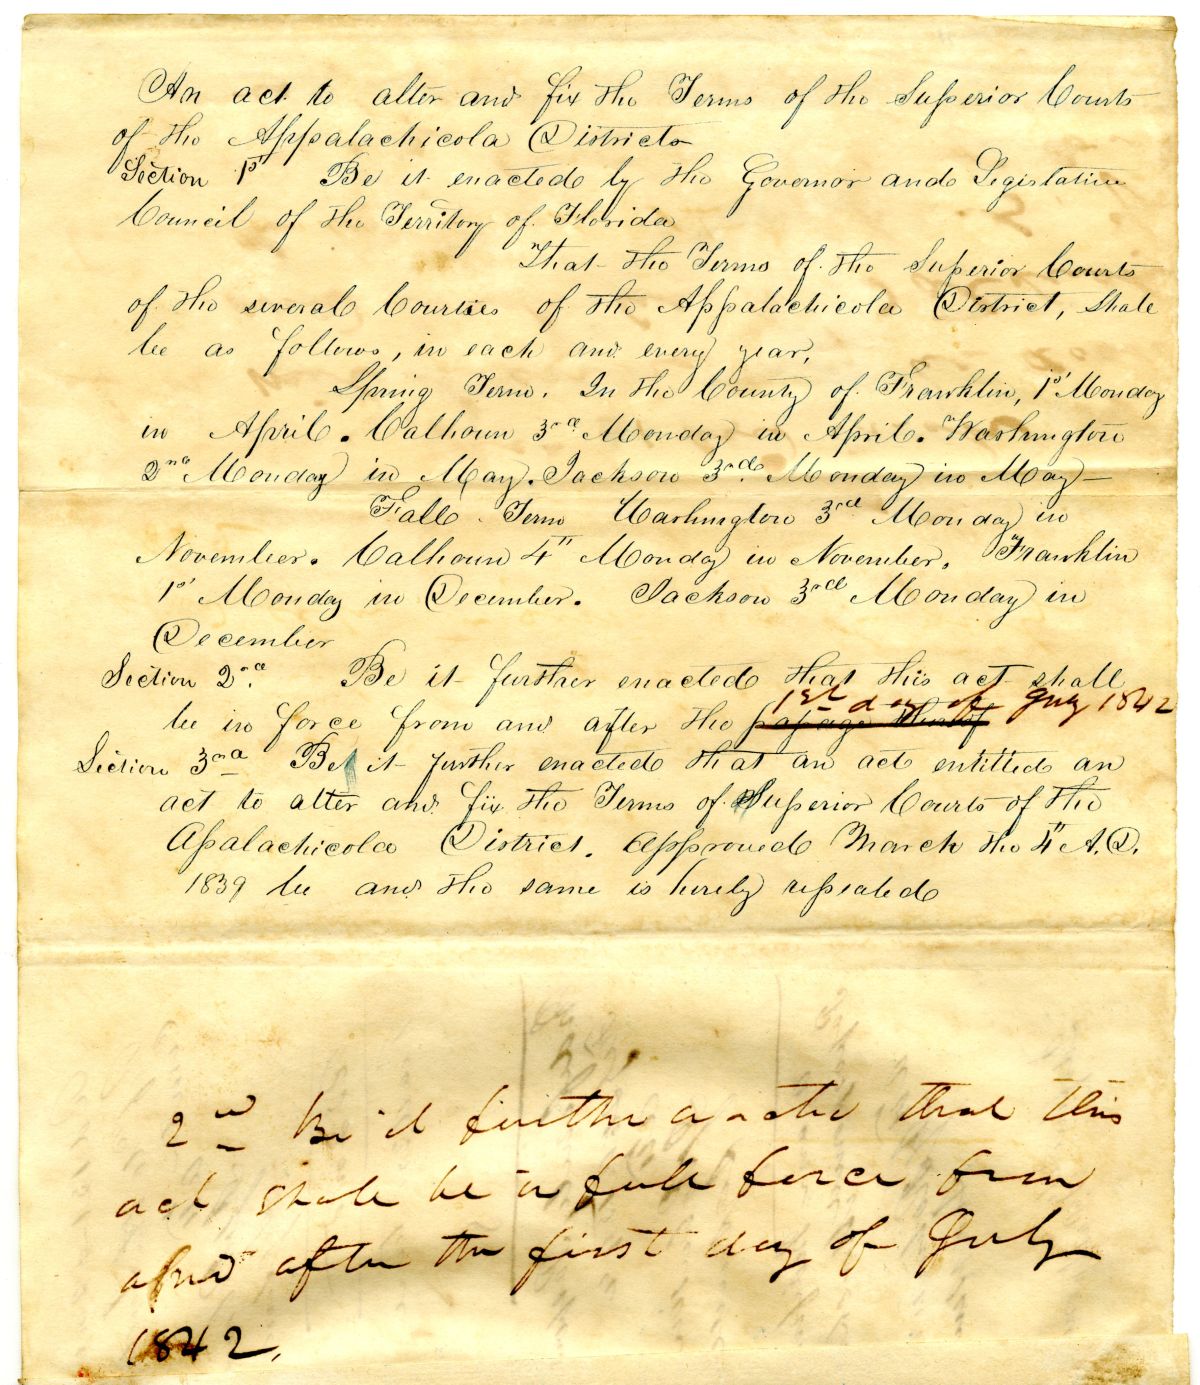 An act to alter and fix the Terms of the Superior Courts
of the Appalachicola Districts
Section 1st Be it enacted by the Governor and Legislative
Council of the Territory of Florida
That the Terms of the Superior Courts
of the several Counties of the Appalachicola District, shall
be as follows, in each and every year,
Spring Term. In the County of Franklin, 1st Monday
in April. Calhoun 3rd Monday in April. Washington
2nd Monday in May. Jackson 3rd Monday in May—
Fall Term Washington 3rd Monday in
November. Calhoun 4th Monday in November. Franklin
1st Monday in December. Jackson 3rd Monday in
December
Section 2nd. Be it further enacted that this act shall
1st day of July 1842
be in force from and after the passage thereof
Section 3rd Be it further enacted that an act entitled an
act to alter and fix the Terms of Superior Courts of the
Apalachicola District. Approved March the 4th A.D.
1839 be and the same is hereby repealed
2nd Be it further enacted that this
act shall be in full force from
and after the first day of July
1842.